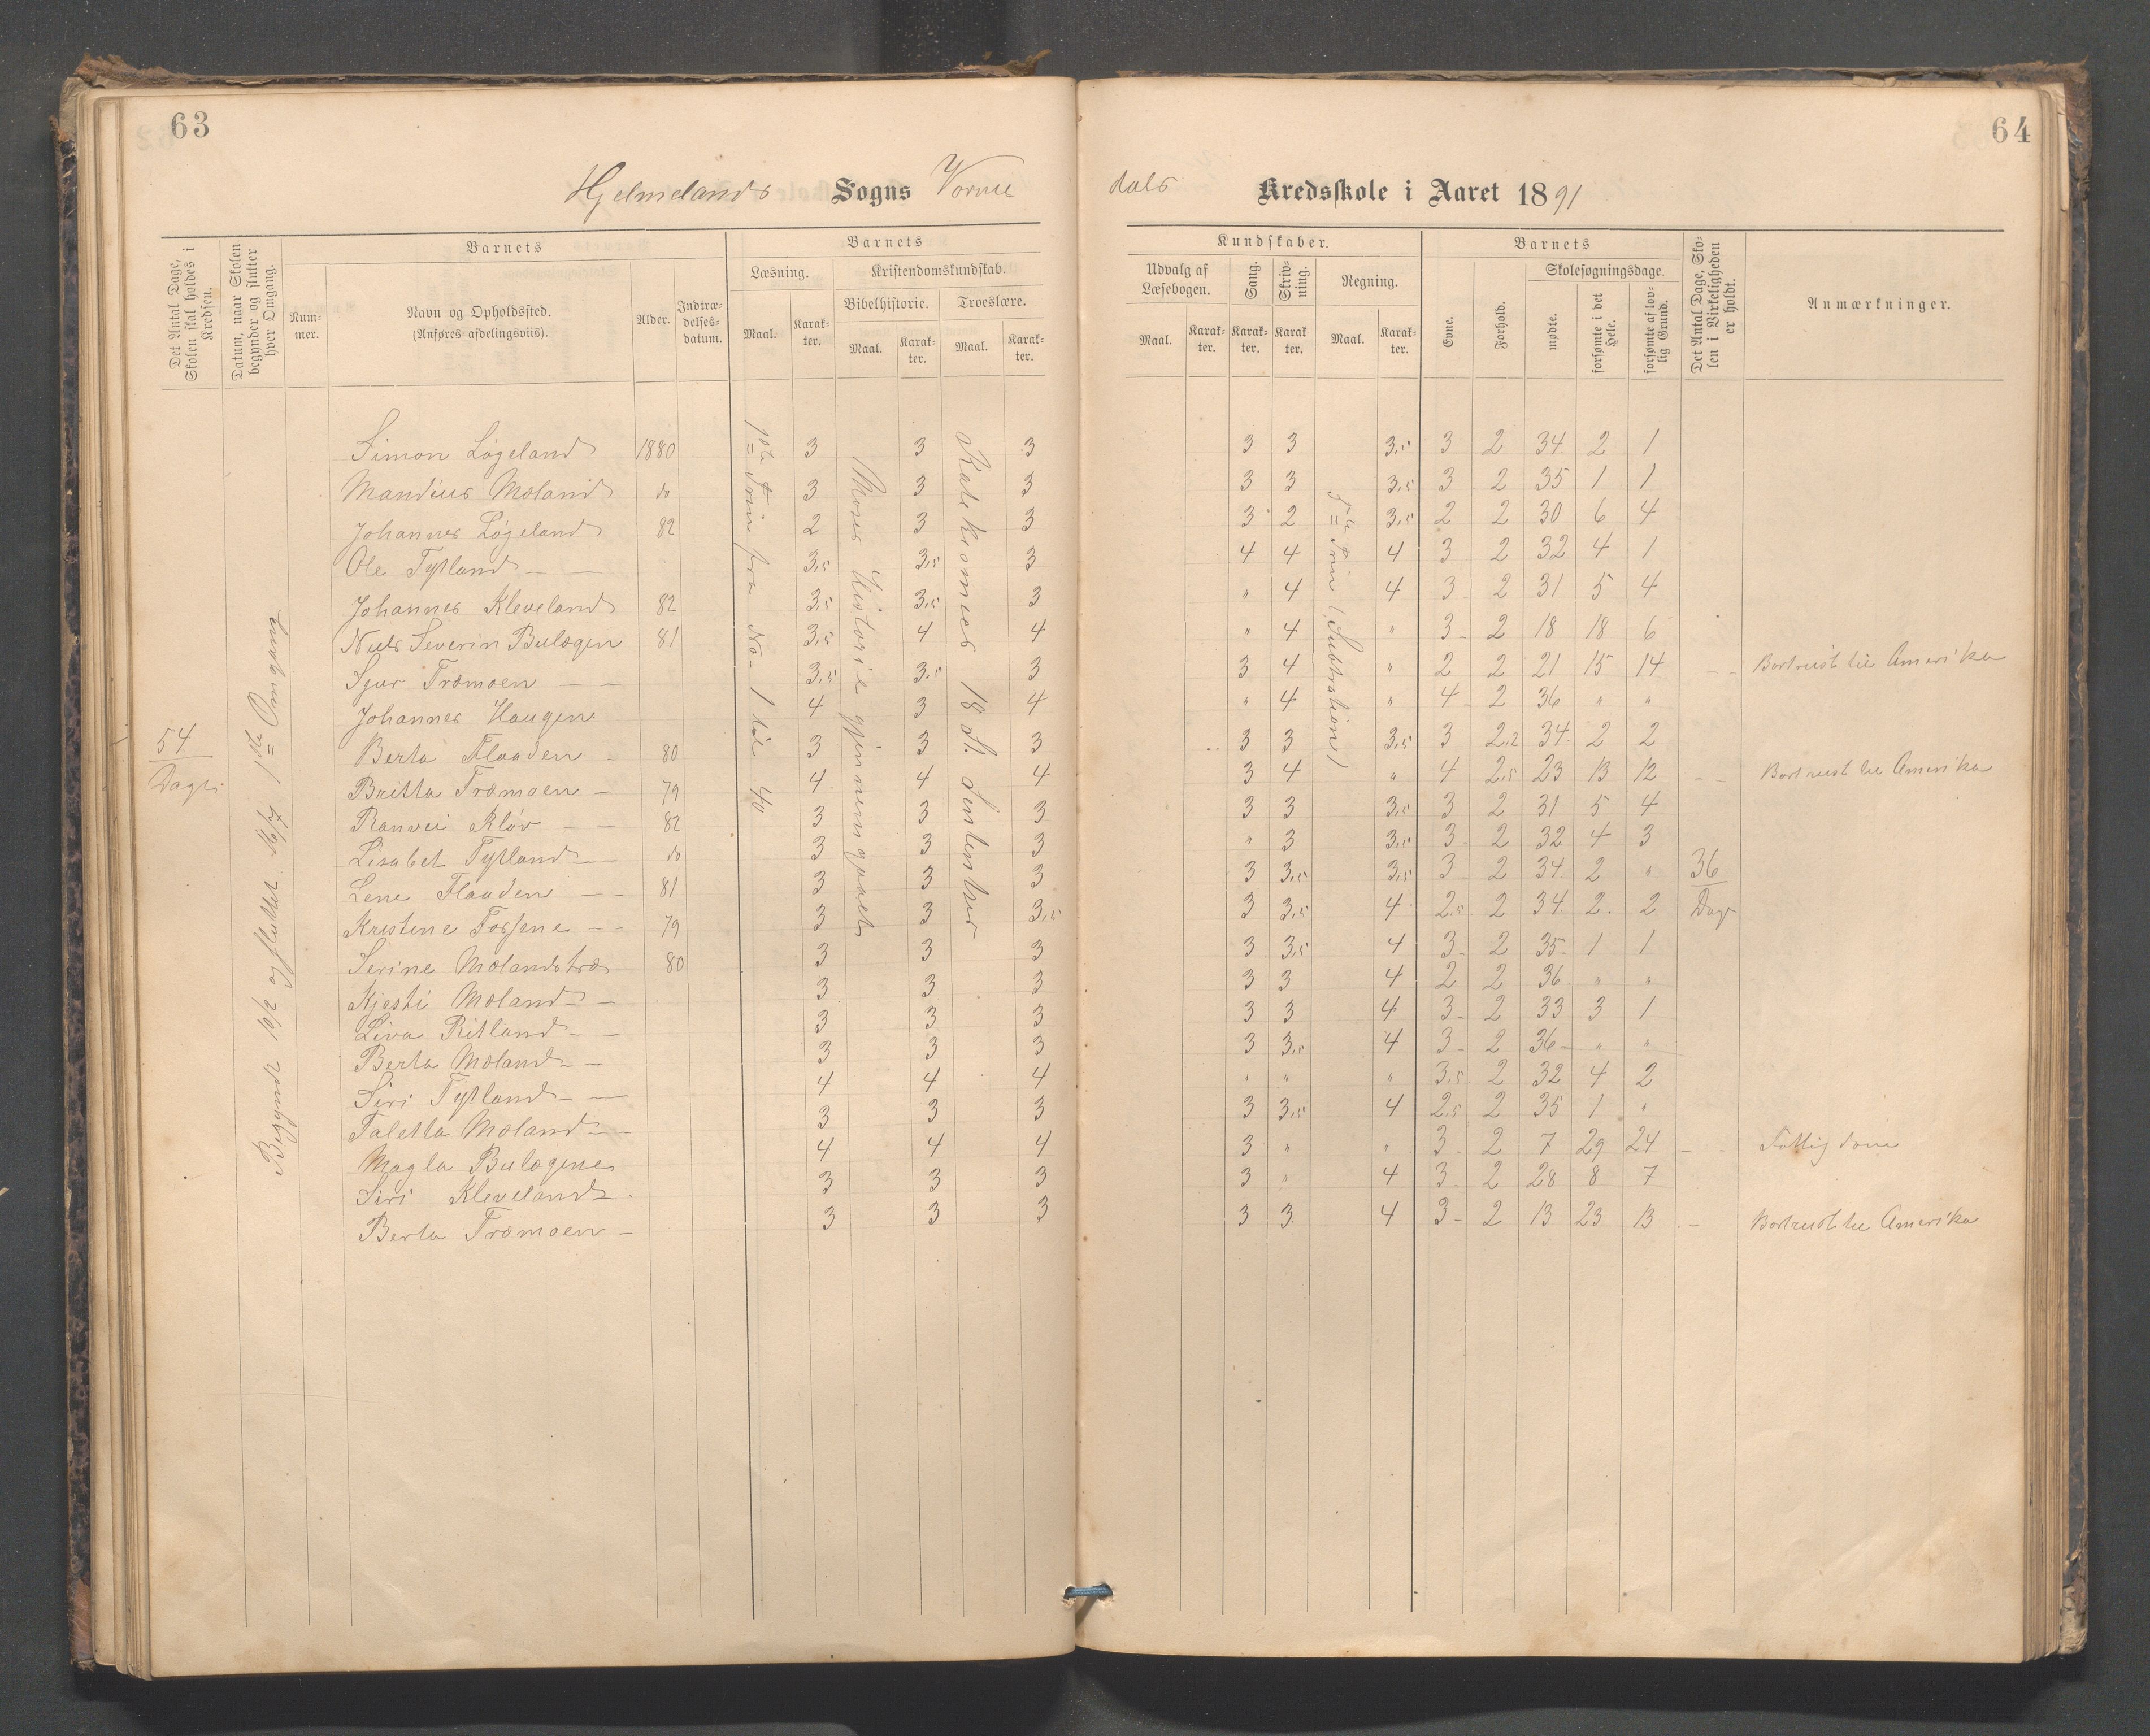 63
64
Hjelmelands Sogns Vorme
dals Kredsskole i Aaret 1891
Det Antal Dage, Skolen skal holdes i Kredsen.
Datum, naar Skolen begynder og slutter hver Omgang.
Barnets
Num-
mer.
Navn og Opholdssted.
(Anføres afdelingsviis).
Alder.
Indtræ-
delses-
datum.
Barnets
Læsning.
Kristendomskundskab.
Bibelhistorie. Troeslære.
Maal. Karak-
ter. Maal. Karak-
ter. Maal. Karak-
ter.
Kundskaber.
Udvalg af
Læsebogen.
Sang.
Skriv-
ning.
Regning.
Maal. Karak-
ter. Karak-
ter. Karak
ter. Maal. Karak-
ter.
Barnets
Evne.
Forhold.
Skolesøgningsdage.
mødte.
forsømte i det Hele.
forsømte af lov-
lig Grund.
Det Antal Dage, Sko-
len i Virkeligheden
er holdt.
Anmærkninger.
54
Dage
Begyndt 10/2 og sluttet 16/7 1ste Omgang
1ste Trin fra No 1 til 40
Moses Historie gjennemgaaet
Katekismes 18 St. Sentenser
1ste Trin (Subtration)
36
Dage
Simon Løgeland 1880 3 3 3 3 3 3,5 3 2 34 2 1
Mandius Moland do 3 3 3 3 3 3,5 3 2 35 1 1
Johannes Løgeland 82 2 3 3 3 2 3,5 2 2 30 6 4
Ole Tytland — — 3,5 3,5 3 4 4 4 3 2 32 4 1
Johannes Kleveland 82 3,5 3,5 3 " 4 4 3 2 31 5 4
Niels Severin Bulægen 81 3,5 4 4 " 4 " 3 2 18 18 6
Sjur Træmoen — — 3,5 3,5 3 3 4 " 2 2 21 15 14 Bortreist til Amerika
Johannes Haugen 4 3 4 " 4 " 4 2 36 " "
Berta Flaaden 80 3 3 3 3 3 3,5 3 2,2 34 2 2
Britta Træmoen — 79 4 4 4 3 4 " 4 2,5 23 13 12 Bortreist til Amerika
Ranvei Kløv — 82 3 3 3 3 3 3,5 3 2 31 5 4
Lisabet Tytland — do 3 3 3 " 3 3,5 3 2 32 4 3
Lene Flaaden — — 81 3 3 3 3 3,5 3,5 3 2 34 2 "
Kristine Fossene — — 79 3 3 3,5 3 3,5 4 2,5 2 34 2 2
Serine Mælandstræ 80 3 3 3 3 3,5 4 3 2 35 1 1
Kjesti Mæland — 3 3 3 3 3 4 2 2 36 " "
Liva Ritland — 3 3 3 3 3 4 3 2 33 3 1
Berta Mæland — 3 3 3 3 3,5 4 3 2 36 " "
Siri Tytland — 4 4 4 " " " 3,5 2 32 4 2
Taletta Mæland — 3 3 3 3 3,5 4 2,5 2 35 1 "
Magla Bulægene 4 4 4 3 " " 3 2 7 29 24 Fattigdom
Siri Kleveland 3 3 3 3 " 4 3 2 28 8 7
Berta Træmoen — 3 3 3 3 3 4 3 2 13 23 13 Bortreist til Amerika